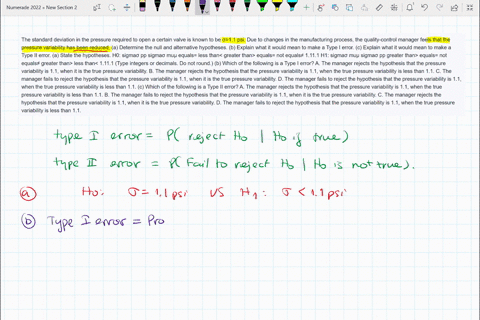 Numerade 2022 > New Section 2
The standard deviation in the pressure required to open a certain valve is known to be σ=1.1 psi. Due to changes in the manufacturing process, the quality-control manager feels that the
pressure variability has been reduced. (a) Determine the null and alternative hypotheses. (b) Explain what it would mean to make a Type I error. (c) Explain what it would mean to make a
Type II error. (a) State the hypotheses. H0: sigmaσ pp sigmaσ muμ equals= less than< greater than> equals= not equals≠ 1.11.11 H1: sigmaσ muμ sigmaσ pp greater than> equals= not
equals≠ greater than> less than< 1.11.1 (Type integers or decimals. Do not round.) (b) Which of the following is a Type I error? A. The manager rejects the hypothesis that the pressure
variability is 1.1, when the true pressure variability is less than 1.1. B. The manager rejects the hypothesis that the pressure variability is 1.1, when it is the true pressure variability. C. The
manager fails to reject the hypothesis that the pressure variability is 1.1, when it is the true pressure variability. D. The manager fails to reject the hypothesis that the pressure variability is 1.1,
when the true pressure variability is less than 1.1. (c) Which of the following is a Type II error? A. The manager rejects the hypothesis that the pressure variability is 1.1, when the true pressure
variability is less than 1.1. B. The manager fails to reject the hypothesis that the pressure variability is 1.1, when it is the true pressure variability. C. The manager rejects the
hypothesis that the pressure variability is 1.1, when it is the true pressure variability. D. The manager fails to reject the hypothesis that the pressure variability is 1.1, when the true pressure
variability is less than 1.1.
type I error = P( reject H0 | H0 if true)
type II error = P( Fail to reject H0 | H0 is not true).
(a) H0: σ = 1.1 psi VS H1: σ < 1.1 psi
(b) Type I error = Pro